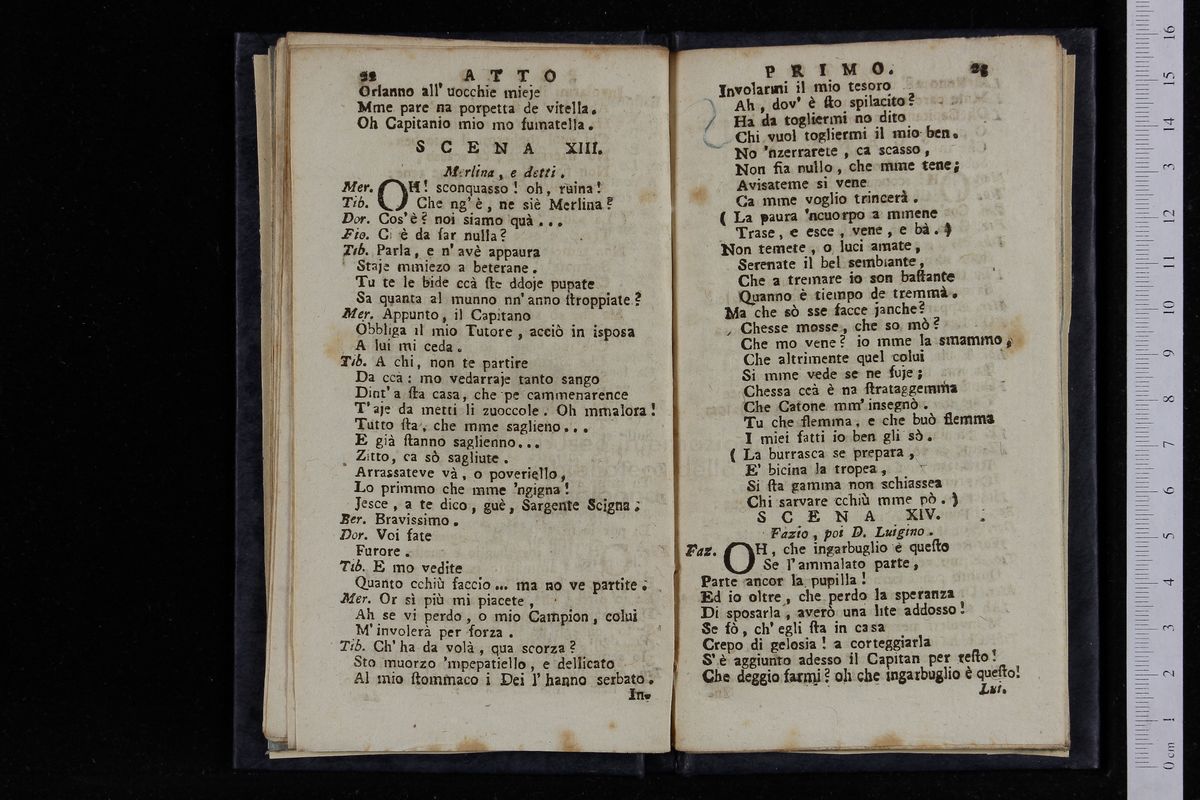 22 ATTO
Orlanno all' uocchie mieje
Mme pare na porpetta de vitella.
Oh Capitanio mio mo fumatella.
SCENA XIII.
Merlina, e detti.
Mer. OH! sconquasso! oh, ruina!
Tib. Che ng'è, ne siè Merlina?
Dor. Cos'è? noi siamo quà...
Fio. Ci è da far nulla?
Tib. Parla, e n'avè appaura
Staje mmiezo a beterane.
Tu te le bide ccà ste ddoje pupate
Sa quanta al munno nn'anno stroppiate?
Mer. Appunto, il Capitano
Obbliga il mio Tutore, acciò in isposa
A lui mi ceda.
Tib. A chi, non te partire
Da ccà: mo vedarraje tanto sango
Dint'a sta casa, che pe cammenarence
T'aje da metti li zuoccole. Oh mmalora!
Tutto sta, che mme saglieno...
E già stanno saglienno...
Zitto, ca sò sagliute.
Arrassateve và, o poveriello,
Lo primmo che mme 'ngigna!
Jesce, a te dico, guè, Sargente Scigna;
Ber. Bravissimo.
Dor. Voi fate
Furore.
Tib. E mo vedite
Quanto cchiù faccio... ma no ve partite.
Mer. Or si più mi piacete,
Ah se vi perdo, o mio Campion, colui
M'involerà per forza.
Tib. Ch'ha da volà, qua scorza?
Sto muorzo 'mpepatiello, e dellicato
Al mio stommaco i Dei l'hanno serbato.
In-
PRIMO. 23
Involarmi il mio tesoro
Ah, dov'è sto spilacito?
Ha da togliermi no dito
Chi vuol togliermi il mio ben.
No 'nzerrarete, ca scasso,
Non fia nullo, che mme tene;
Avisateme si vene
Ca mme voglio trincerà.
( La paura 'ncuorpo a mmene
Trase, e esce, vene, e bà. )
Non temete, o luci amate,
Serenate il bel sembiante,
Che a tremare io son bastante
Quanno è tiempo de tremmà.
Ma che sò sse facce janche?
Chesse mosse, che so mò?
Che mo vene? io mme la smammo,
Che altrimente quel colui
Si mme vede se ne fuje;
Chessa ccà è na strataggemma
Che Catone mm'insegnò.
Tu che flemma, e che buò flemma
I miei fatti io ben gli sò.
( La burrasca se prepara,
E' bicina la tropea,
Si sta gamma non schiassea
Chi sarvare cchiù mme pò. )
SCENA XIV.
Fazio, poi D. Luigino.
Faz. OH, che ingarbuglio è questo
Se l'ammalato parte,
Parte ancor la pupilla!
Ed io oltre, che perdo la speranza
Di sposarla, averò una lite addosso!
Se fò, ch'egli sta in casa
Crepo di gelosia! a corteggiarla
S'è aggiunto adesso il Capitan per resto!
Che deggio farmi? oh che ingarbuglio è questo!
Lui.
0 cm 1 2 3 4 5 6 7 8 9 10 11 12 13 14 15 16